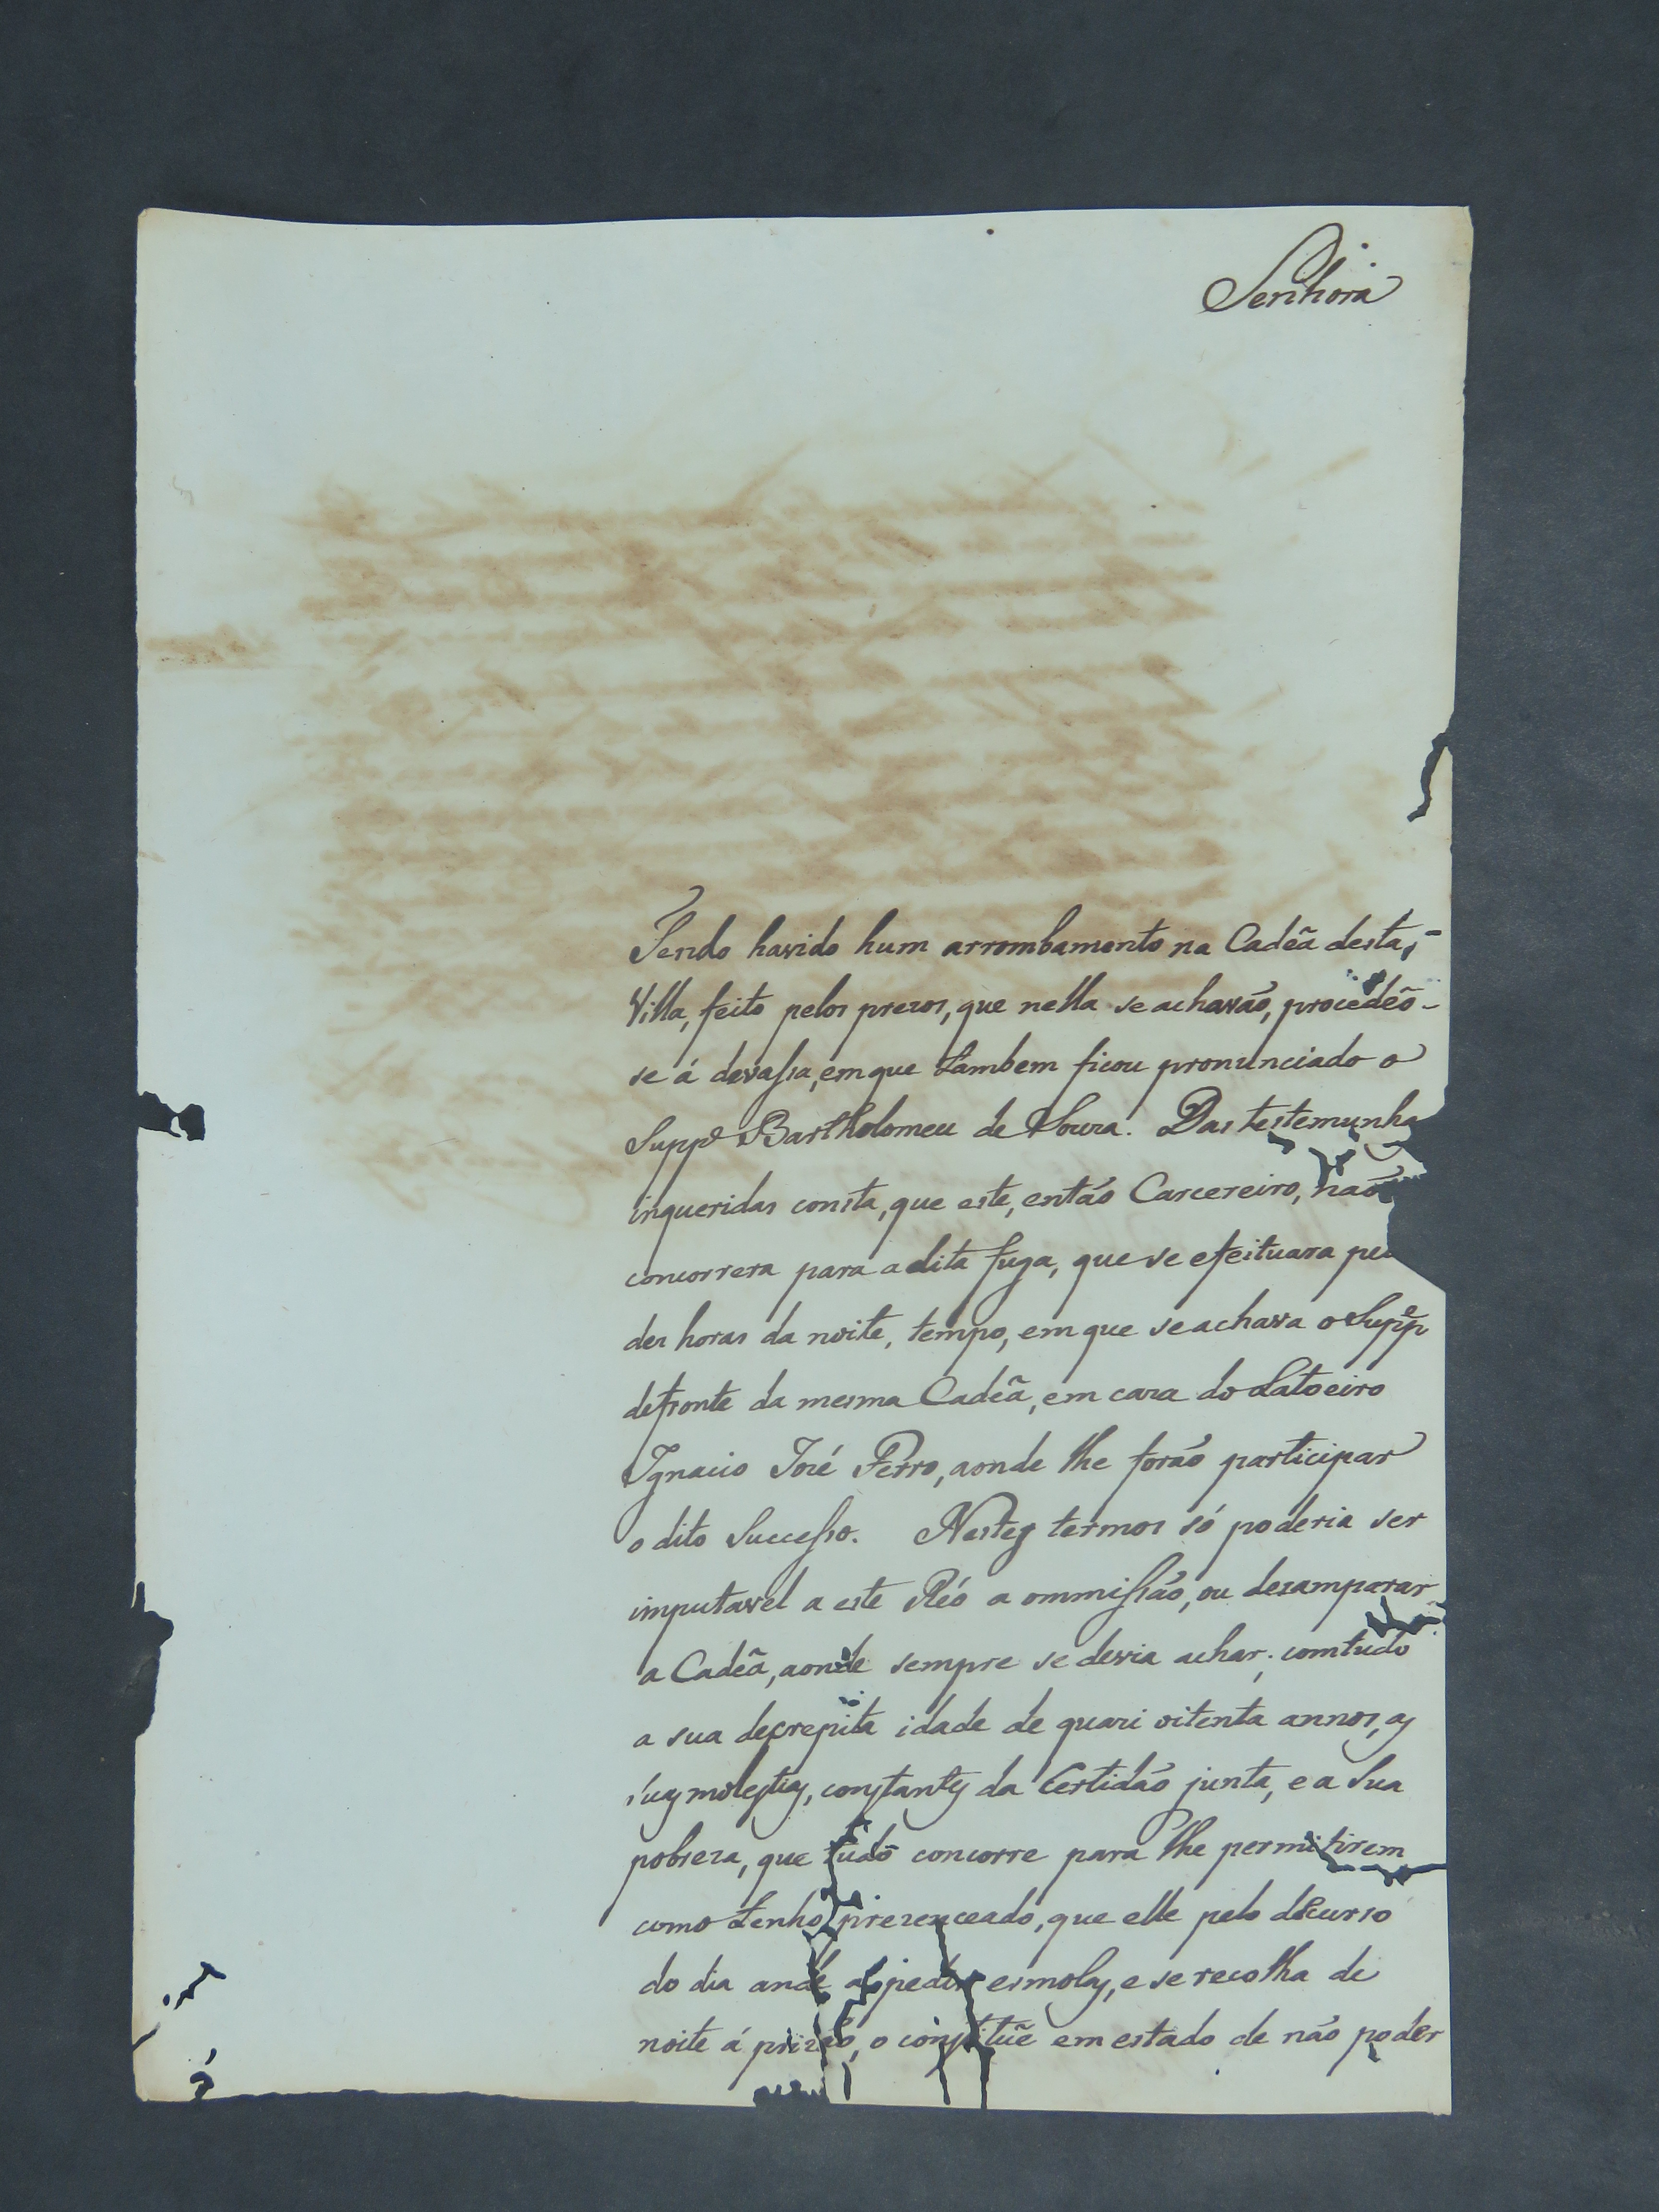 Senhora
Tendo havido hum arrombamento na Cadêa desta
Villa, feito pelos prezos, que nella se achavão, procedêo-
se á devassa, em que tambem ficou pronunciado o
Supp.e Bartholomeu de Souza. Das testemunha
inqueridas consta, que este, então Carcereiro, não
concorrera para a dita fuga, que se efeituara
dez horas da noite, tempo, em que se achava o Supp.e
defronte da mesma Cadêa, em caza do Latoeiro
Ignacio José Ferro, aonde lhe forão participar
o dito Successo. Nestes termos só poderia ser
imputavel a este Réo a ommissão, ou dezamparar
a Cadêa, aonde sempre se devia achar; comtudo
a sua decrepita idade de quazi oitenta annos, as
suas molestias, constantes da Certidão junta, e a Sua
pobreza, que tudo concorre para lhe permitirem
como tenho prezenceado, que elle pelo decurso
do dia ande a pedir esmolas, e se recolha de
noite á prizão, o constituê em estado de não poder